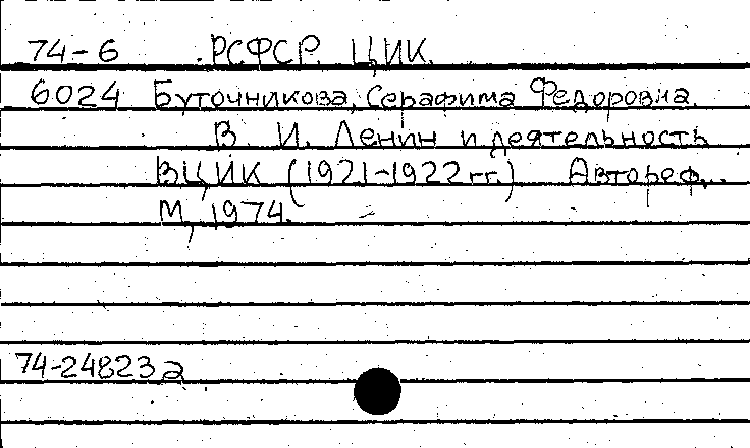 74-6 РСФСР. ЦИК.
6024 Буточникова, Серафима Федоровна.
В. И. Ленин и деятельность
ВЦИК (1921-1922 гг.) Автореф.
М, 1974.
74-24823а